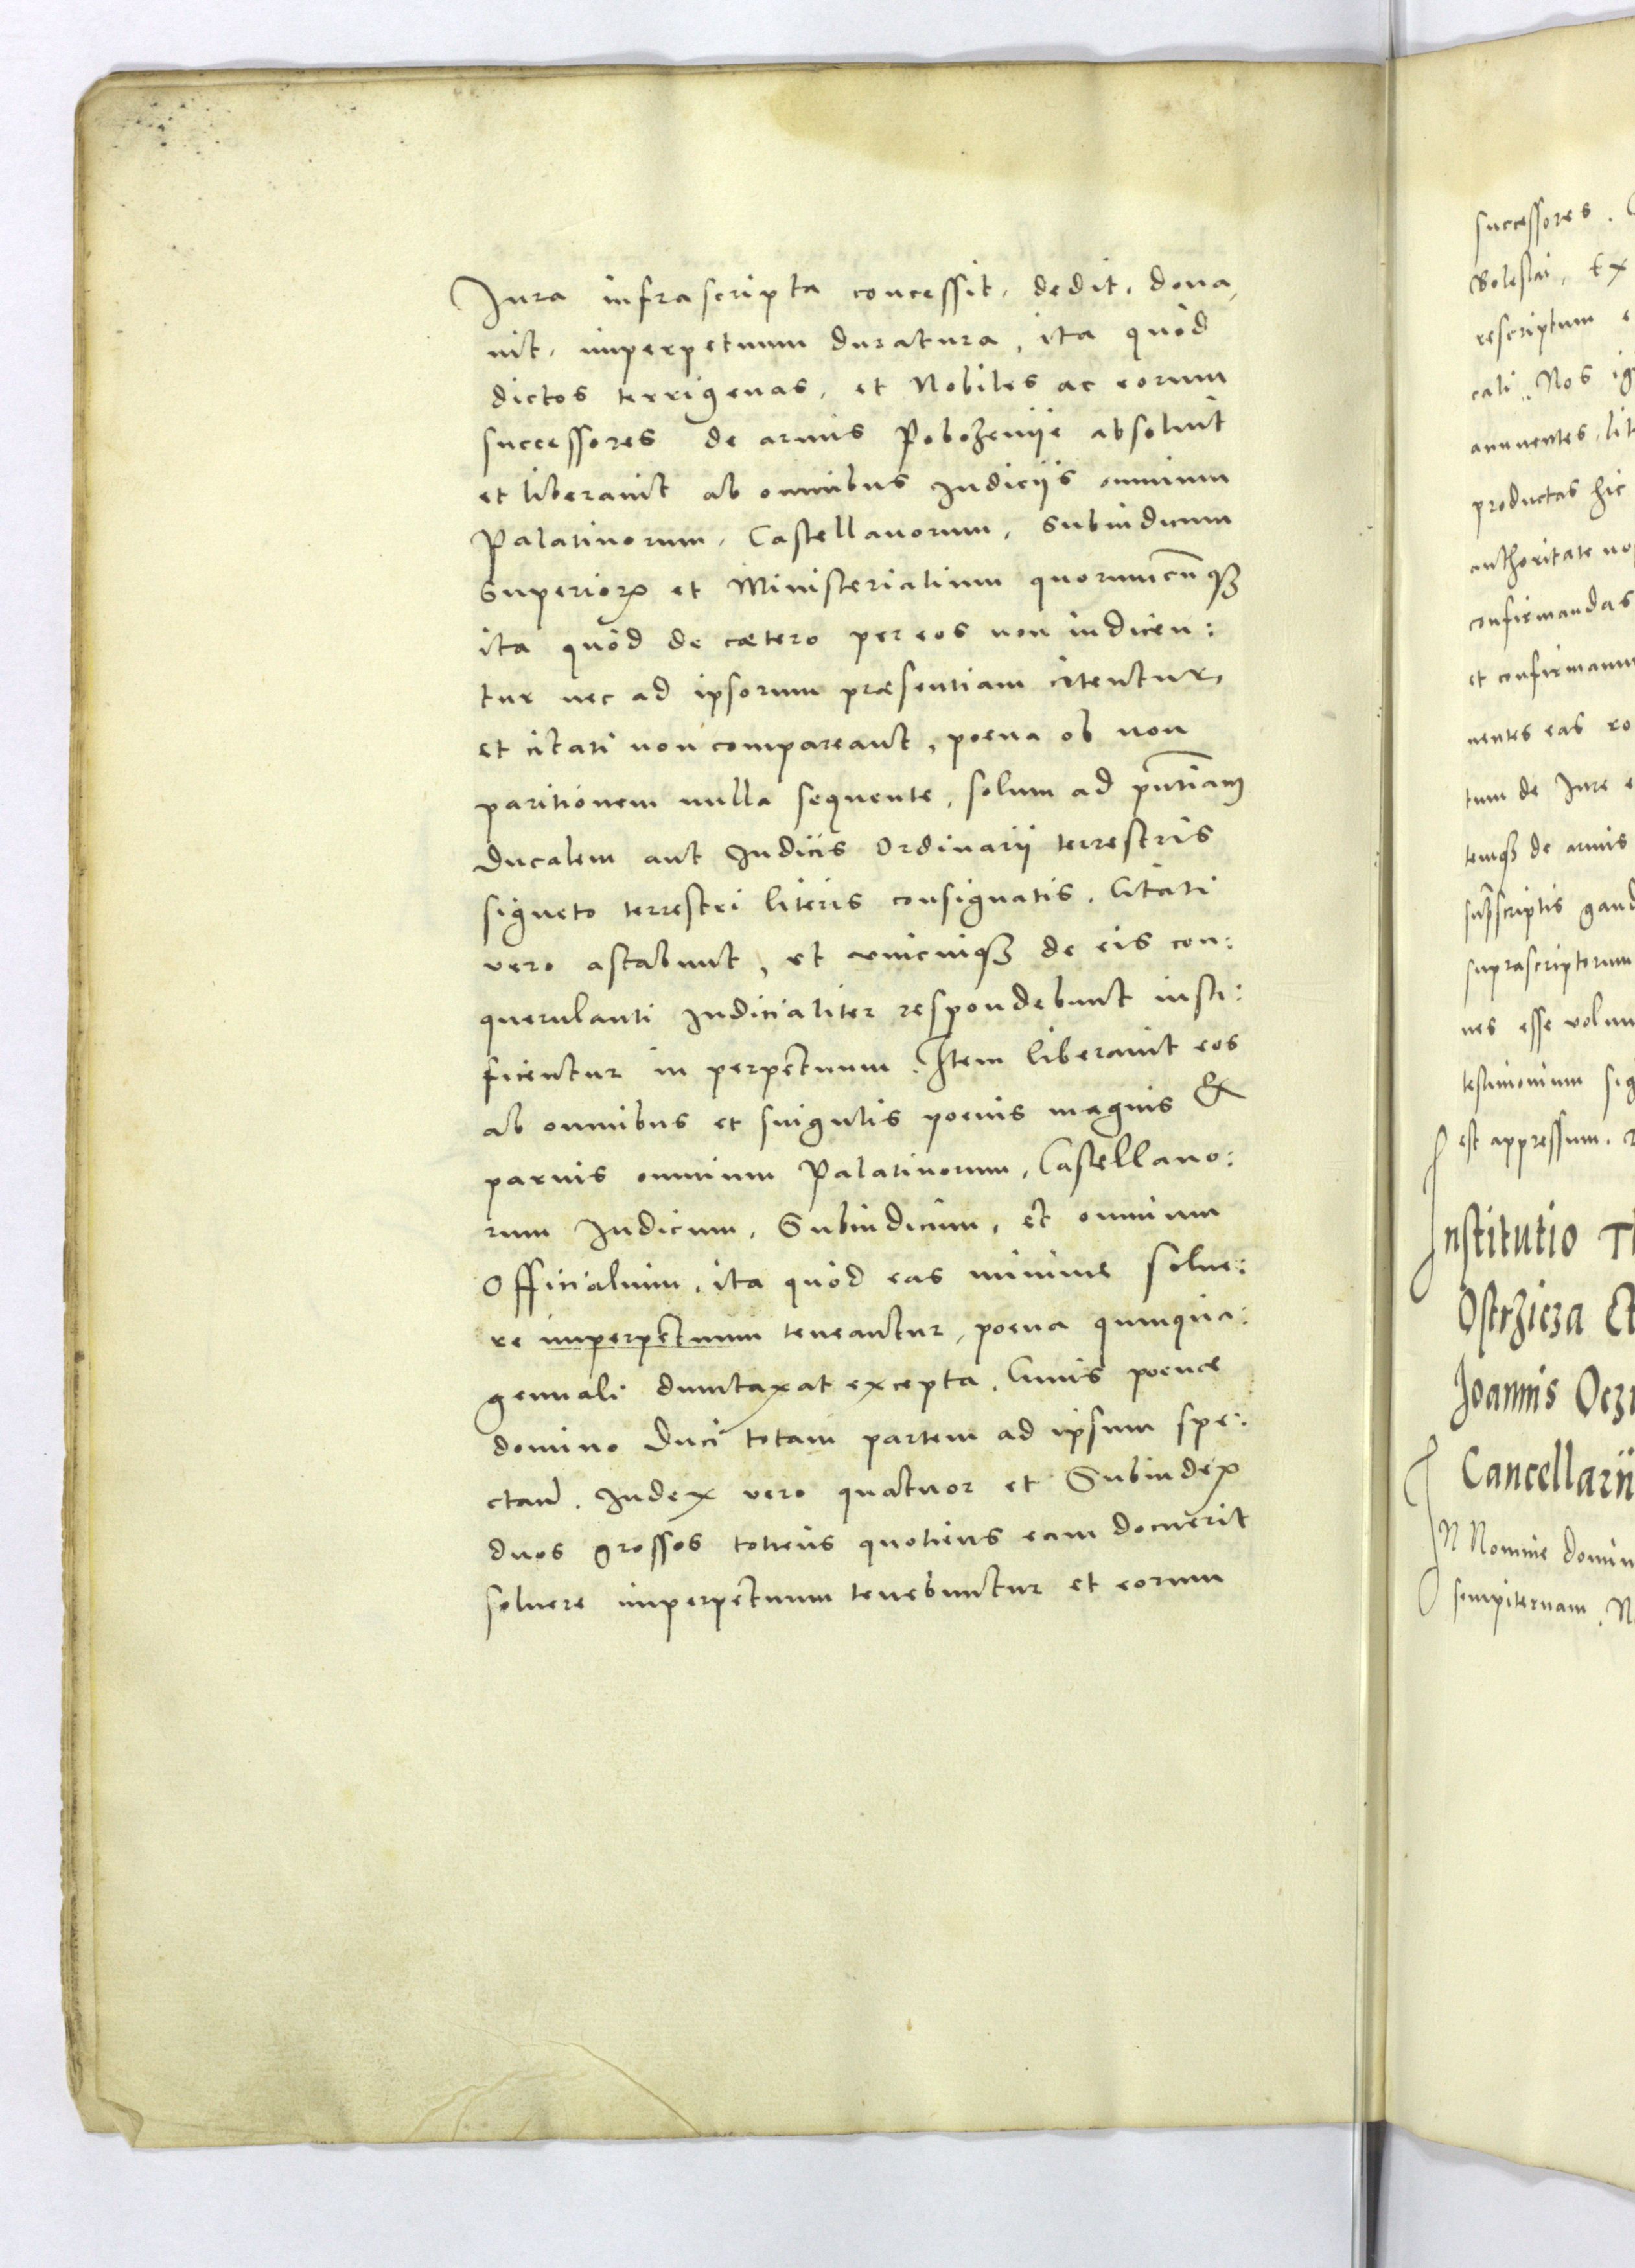 Jura infrascripta concessit, dedit, dona,
uit, imperpetuum duratura, ita quòd
dictos terrigenas, et Nobiles ac eorum
successores de armis Pobozeniie absoluit
et liberauit ab omnibus Judicijs omnium
Palatinorum, Castellanorum, Subiudicum
Superiorꝝ et Ministerialium quorumcunqꝫ
ita quòd de cætero per eos non iudicen:
tur nec ad ipsorum præsentiam citentur,
et citati non compareant, poena ob non
paritionem nulla sequente, solum ad pn̄tiam
Ducalem aut Judicis Ordinarii terrestris
signeto terrestri literis consignatis. Citati
vero astabunt, et vnicuiqꝫ de eis con:
querulanti Judicialiter respondebunt iusti:
ficentur in perpetuum. Item liberauit eos
ab omnibus et singulis poenis magnis &
paruis omnium Palatinorum, Castellano:
rum Judicum, Subiudicum, et omnium
Officialium, ita quòd eas minime solue:
re imperpetuum teneantur, poena quinqua:
gennali duntaxat excepta. Cuius poenæ
domino Duci totam partem ad ipsum spe:
ctan̄. Judex vero quatuor et Subiudex
duos grossos totiens quotiens eam docuerit
soluere imperpetuum tenebuntur et eorum
successores.
Bolestai, Ex
rescriptum
cali, Nos
annuentes,
productas hic
authoritate
confirmandas
et
nentes eas
tum de Jure
temqꝫ de armis
suprascriptis
suprascriptorum
nes esse
testimonium
est appressum.
Institutio
Ostrzicza Et
Joannis
Cancellarii
IN Nomine
sempiternam.